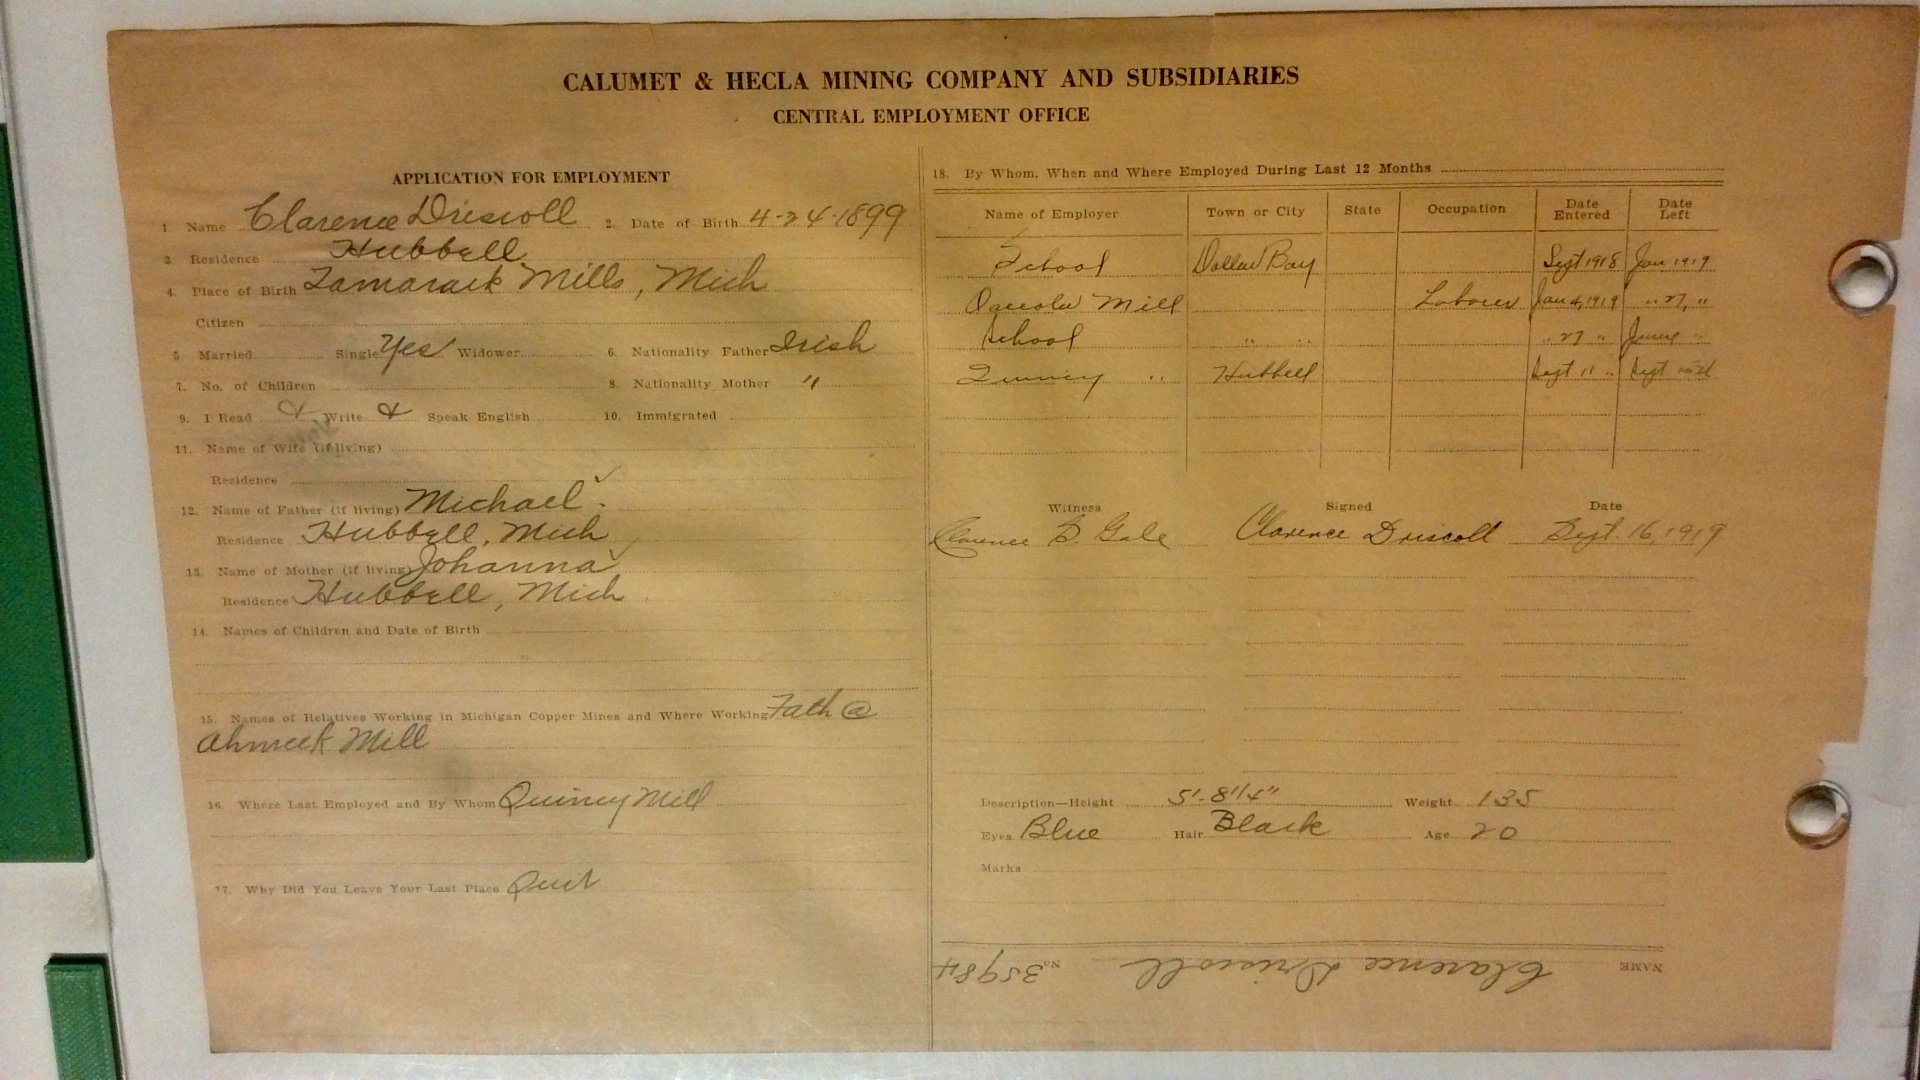 CALUMET & HECLA MINING COMPANY AND SUBSIDIARIES
CENTRAL EMPLOYMENT OFFICE
APPLICATION FOR EMPLOYMENT
1. Name Clarence Driscoll 2. Date of Birth 4-24-1899
3. Residence Hubbell
4. Place of Birth Tamarack Mills, Mich
Citizen
5. Married Single Yes Widower 6. Nationality Father Irish
7. No. of Children 8. Nationality Mother "
9. I Read & Write & Speak English 10. Immigrated
11. Name of Wife (if living)
Residence
12. Name of Father (if living) Michael
Residence Hubbell, Mich
13. Name of Mother (if living) Johanna
Residence Hubbell, Mich
14. Names of Children and Date of Birth
15. Names of Relatives Working in Michigan Copper Mines and Where Working Fath @
Ahmeek Mill
16. Where Last Employed and By Whom Quincy Mill
17. Why Did You Leave Your Last Place Quit
18. By Whom, When and Where Employed During Last 12 Months
Name of Employer Town or City State Occupation Date Entered Date Left
School Dollar Bay Sept 1918 Jan 1919
Osceola Mill Laborer Jan 4, 1919 " 27, "
School " " " 27 " June "
Quincy " Hubbell Sept 11 " Sept
Witness Signed Date
Clarence B. Gale Clarence Driscoll Sept. 16, 1919
Description—Height 5'-8 1/4" Weight 135
Eyes Blue Hair Black Age 20
Marks
NAME Clarence Driscoll No. 35984